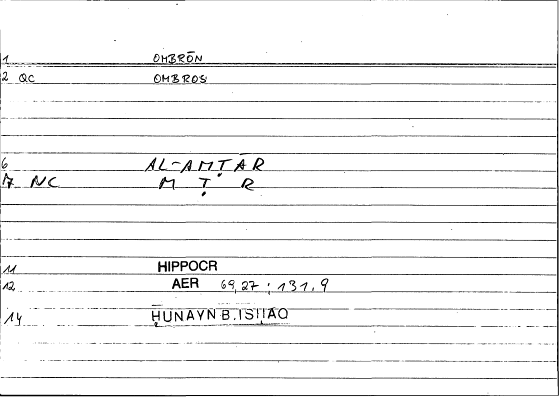 1 OMBRŌN
2 QC OMBROS
6 AL-AMṬĀR
7 NC M Ṭ R
11 HIPPOCR
12 AER 69,27 ; 131,9
14 ḤUNAYN B.ISḤĀQ